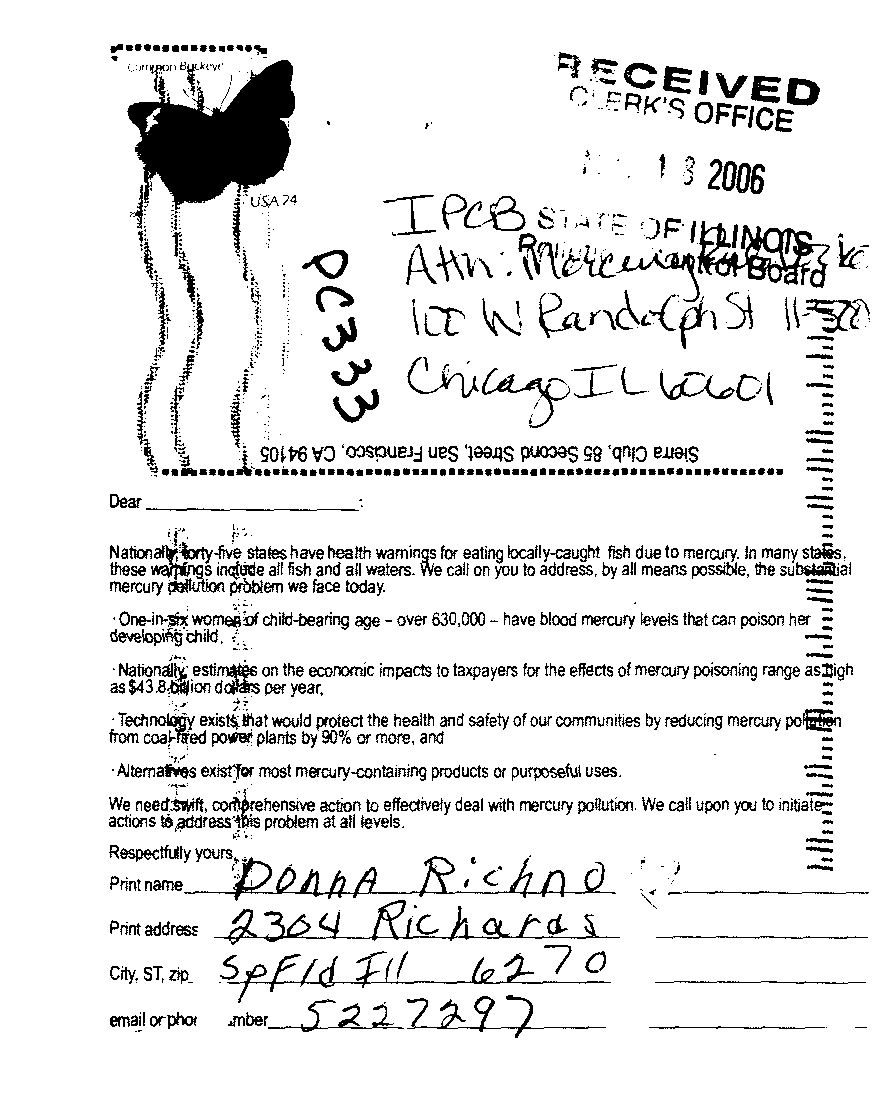 Common Buckeye
USA 24
RECEIVED
CLERK'S OFFICE
18 2006
STATE OF ILLINOIS
Board
IPCB
Attn: Mercury
100 W Randolph St 11-500
Chicago IL 60601
PC333
Sierra Club, 85 Second Street, San Francisco, CA 94105
Dear :
Nationally, forty-five states have health warnings for eating locally-caught fish due to mercury. In many states,
these warnings include all fish and all waters. We call on you to address, by all means possible, the substantial
mercury pollution problem we face today.
· One-in-six women of child-bearing age – over 630,000 – have blood mercury levels that can poison her
developing child,
· Nationally, estimates on the economic impacts to taxpayers for the effects of mercury poisoning range as high
as $43.8 billion dollars per year,
· Technology exists that would protect the health and safety of our communities by reducing mercury pollution
from coal-fired power plants by 90% or more, and
· Alternatives exist for most mercury-containing products or purposeful uses.
We need swift, comprehensive action to effectively deal with mercury pollution. We call upon you to initiate
actions to address this problem at all levels.
Respectfully yours,
Print name Donna Richno
Print address 2304 Richards
City, ST, zip SpFld Ill 6270
email or phor mber 5227297